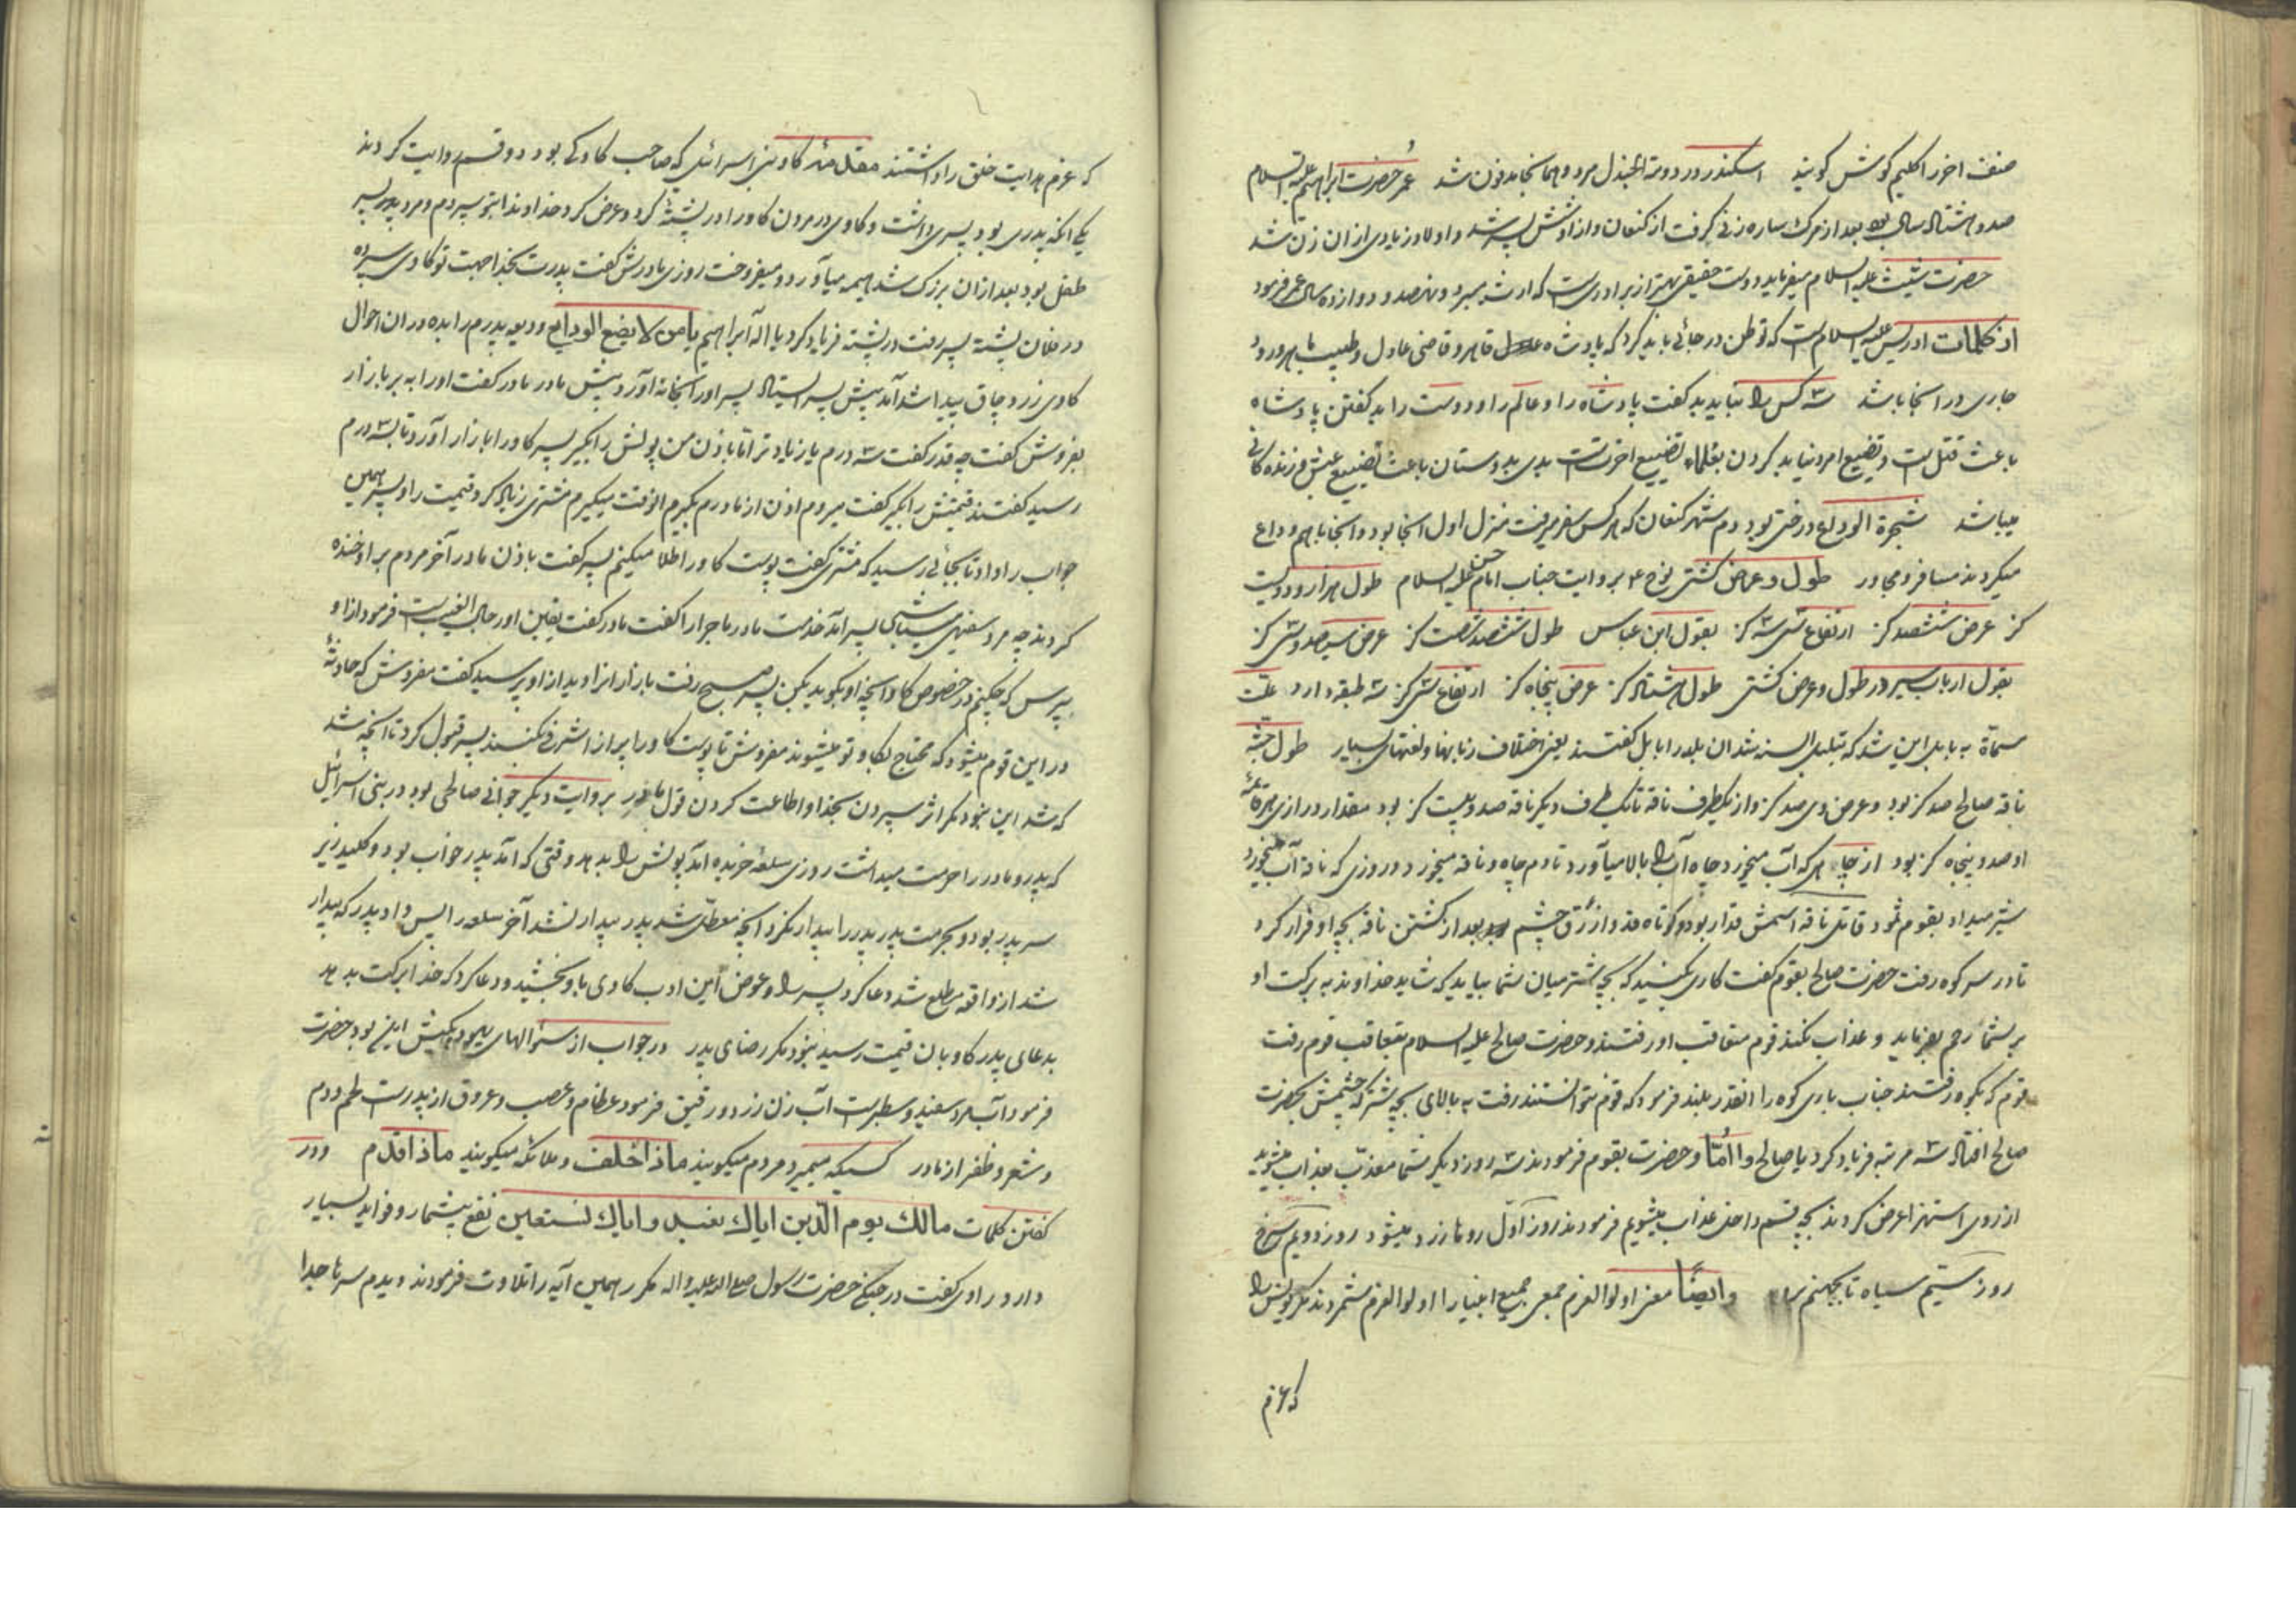 صنف اخر را کلیم کوش کویند اسکندر در دومة الجندل مرد و همانجا مدفون شد عمر حضرت ابراهیم علیه السلام
صد و هشتاد سال بود بعد از مرک ساره زنی کرفت از کنعان و از او شش پسر شد و اولاد زیادی از ان زن شد
حضرت شیث علیه السلام میفرماید دوست حقیقی بهتر از برادری است که ارث ببرد و نهصد و دوازده سال عمر فرمود
از کلمات ادریس علیه السلام است که توطن در جائی باید کرد که پادشاه قاهر و قاضی عادل و طبیب ماهر و رود
جاری در انجا باشد سه کس را نباید بد کفت پادشاه را و عالم را و دوست را بد کفتن پادشاه
باعث قتل است و تضییع امر دنیا بد کردن بعلماء تضییع اخرت است بدی بدوستان باعث تضییع عیش و زنده کانی
میباشد شجرة الوداع درختی بود دم شهر کنعان که هر کس سفر میرفت منزل اول انجا بود و انجا با هم وداع
میکردند مسافر و مجاور طول و عرض کشتی نوح ع بروایت جناب امام حسن علیه السلام طول هزار و دویست
کز عرض ششصد کز ارتفاع سی سه کز بقول ابن عباس طول ششصد شصت کز عرض سیصد و سی کز
بقول ارباب سیر در طول و عرض کشتی طول هشتاد کز عرض پنجاه کز ارتفاع سی کز سه طبقه دارد علت
مسماة به بابل این شد که تبلبل السنه شد ان بلد را بابل کفتند یعنی اختلاف زبانها و لغتهای بسیار طول جثه
ناقه صالح صد کز بود و عرض وی صد کز و از یکطرف ناقه تا یک طرف دیکر ناقه صد و بیست کز بود مقدار درازی هر قائمه
او صد و پنجاه کز بود از چاهی که آب میخورد چاه آب را بالا میآورد تا دم چاه و ناقه میخورد در روزی که ناقه آب میخورد
شیر میداد بقوم ثمود قاتل ناقه اسمش قدار بود و کوتاه قد و ازرق چشم بعد از کشتن ناقه بچه او فرار کرد
تا در سر کوه رفت حضرت صالح بقوم کفت کاری بکنید که بچه شتر میان شما بیاید که شاید خداوند به برکت او
بر شما رحم بفرماید و عذاب نکند قوم متعاقب او رفتند و حضرت صالح علیه السلام بتعاقب قوم رفت
قوم که بکوه رفتند جناب باری کوه را انقدر بلند فرمود که قوم نتوانستند رفت به بالای بچه شتر که چشمش بحضرت
صالح افتاد سه مرتبه فریاد کرد یا صالح وا امّا و حضرت بقوم فرمودند سه روز دیکر شما معذب بعذاب میشوید
از روی استهزا عرض کردند بچه قسم داخل عذاب میشویم فرمودند روز اول روها زرد میشود روز دویم سرخ
روز سیم سیاه تا بجهنم وایضًا معنی اولوالعزم جمعی جمیع انبیا را اولوالعزم شمردند مکر یونس را
که عزم
که عزم هدایت خلق را داشتند مقدمه کاو بنی اسرائیل که صاحب کاو کی بود دو قسم روایت کردند
یکی انکه پدری بود پسری داشت و کاوی در مردن کاو را در پشته کرد و عرض کرد خداوندا بتو سپردم و مرد پدر پسر
طفل بود بعد از ان بزرک شد هیمه میآورد و میفروخت روزی مادرش کفت پدرت بخدا جهت تو کاوی سپرده
در فلان پشته پسر رفت در پشته فریاد کرد یا اله ابراهیم یا من لا یضیع الودایع ودیعه پدرم را بده در ان احوال
کاوی زرد چاق پیدا شد آمد پیش پسر ایستاد پسر او را بخانه آورد پیش مادر مادر کفت او را ببر بازار
بفروش کفت چه قدر کفت سه درم یا زیادتر اما باذن من پولش را بکیر پسر کاو را بازار آورد تا بسه درم
رسید کفتند قیمتش را بکیر کفت میروم اذن از مادرم بکیرم الوقت میکیرم مشتری زیاد کرد قیمت را و پسر همین
جواب را داد تا بجائی رسید که مشتری کفت پوست کاو را طلا میکنم پسر کفت باذن مادر آخر مردم بر او خنده
کردند چه مرد سفیهی میباشی پسر آمد خدمت مادر ماجرا را کفت مادر کفت یقین او رجال الغیب است فرمود از او
بپرس که چکنم در خصوص کاو انچه او بکوید بکن پسر صبح رفت بازار انرا دید از او پرسید کفت مفروش که حادثه
در این قوم میشود که محتاج بکاو تو میشوند مفروش تا پوست کاو را پر از اشرفی نکنند پسر قبول کرد تا انچه شد
که شد این نبود مکر اثر سپردن بخدا و اطاعت کردن قول مادر بروایت دیکر جوانی صالحی بود در بنی اسرائیل
که پدر و مادر را حرمت میداشت روزی سلعه خریده آمد پولش را بدهد وقتی که آمد پدر خواب بود و کلید زیر
سر پدر بود و بحرمت پدر پدر را بیدار نکرد انچه معطل شد پدر بیدار نشد آخر سلعه را پس داد پدر که بیدار
شد از واقعه مطلع شد دعا کرد پسر را و عوض این ادب کاوی باو بخشید و دعا کرد که خدا برکت بدهد
بدعای پدر کاو بان قیمت رسید نبود مکر رضای پدر در جواب از سؤالهای یهود یکیش این بود حضرت
فرمود آب مرد سفید و سطبر است آب زن زرد و رقیق فرمود عظام و عصب و عروق از پدر است لحم و دم
و شعر و ظفر از مادر کسیکه میمیرد مردم میکویند ماذا خلف و ملائکه میکویند ماذا قدم ودر
کفتن کلمات مالک یوم الدین ایاک نعبد و ایاک نستعین نفع بیشمار و فواید بسیار
دارد راوی کفت در جنکی حضرت رسول صلی الله علیه واله مکرر همین آیه را تلاوت فرمودند دیدم سرها جدا